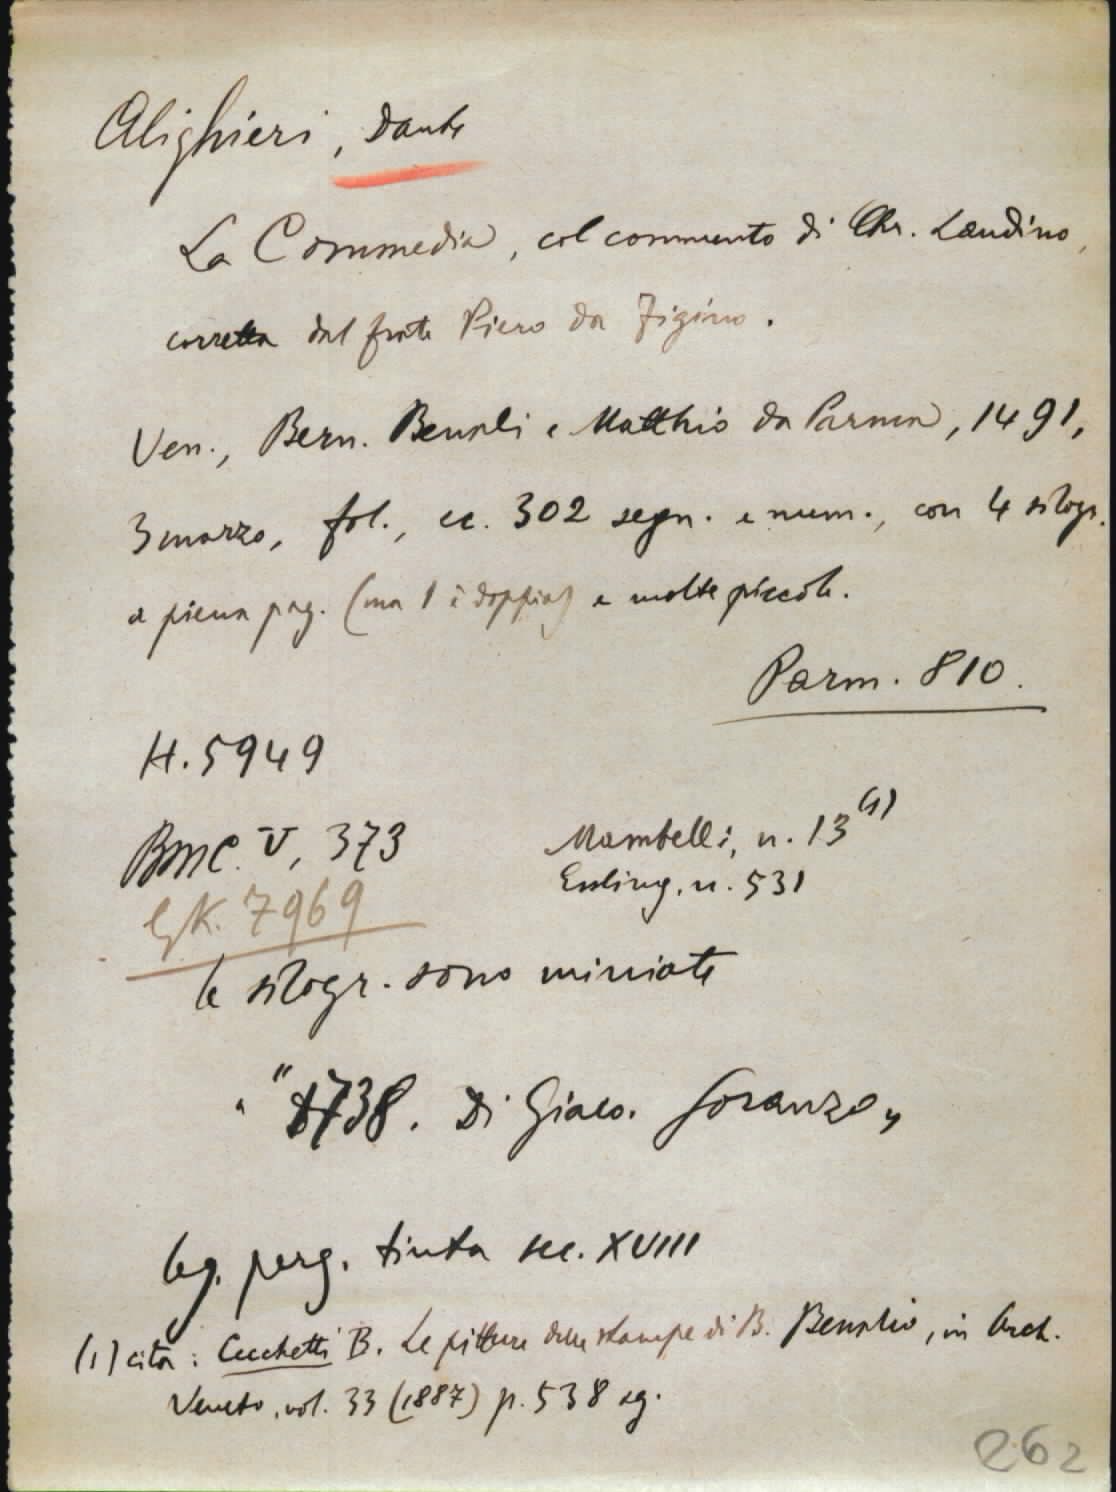 Alighieri, Dante
La Commedia, col commento di Chr. Landino,
corretta dal frate Piero da Figino.
Ven., Bern. Benali e Matthio da Parma, 1491,
3 marzo, fol., cc. 302 segn. e num., con 4 silogr.
a piena pag. (ma 1 è doppia) e molte piccole.
Parm. 810.
H. 5949
BMC. V, 373
Mambelli, n. 13 (1)
Essling, n. 531
GK. 7969
le silogr. sono miniate
"1738. Di Giaco. Soranzo„
leg. perg. tinta sec. XVIII
(1) cita: Cecchetti B. Le pitture delle stampe di B. Benalio, in Arch.
Veneto, vol. 33 (1887) p. 538 sg.
262